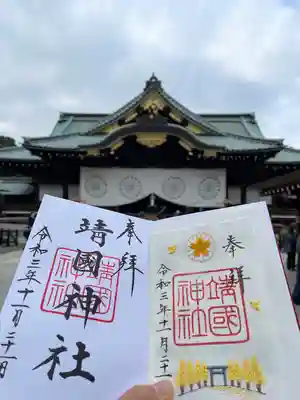 奉拝
靖國神社
靖國神社
令和三年十一月二十一日
奉拝
靖國神社
令和三年十一月二十